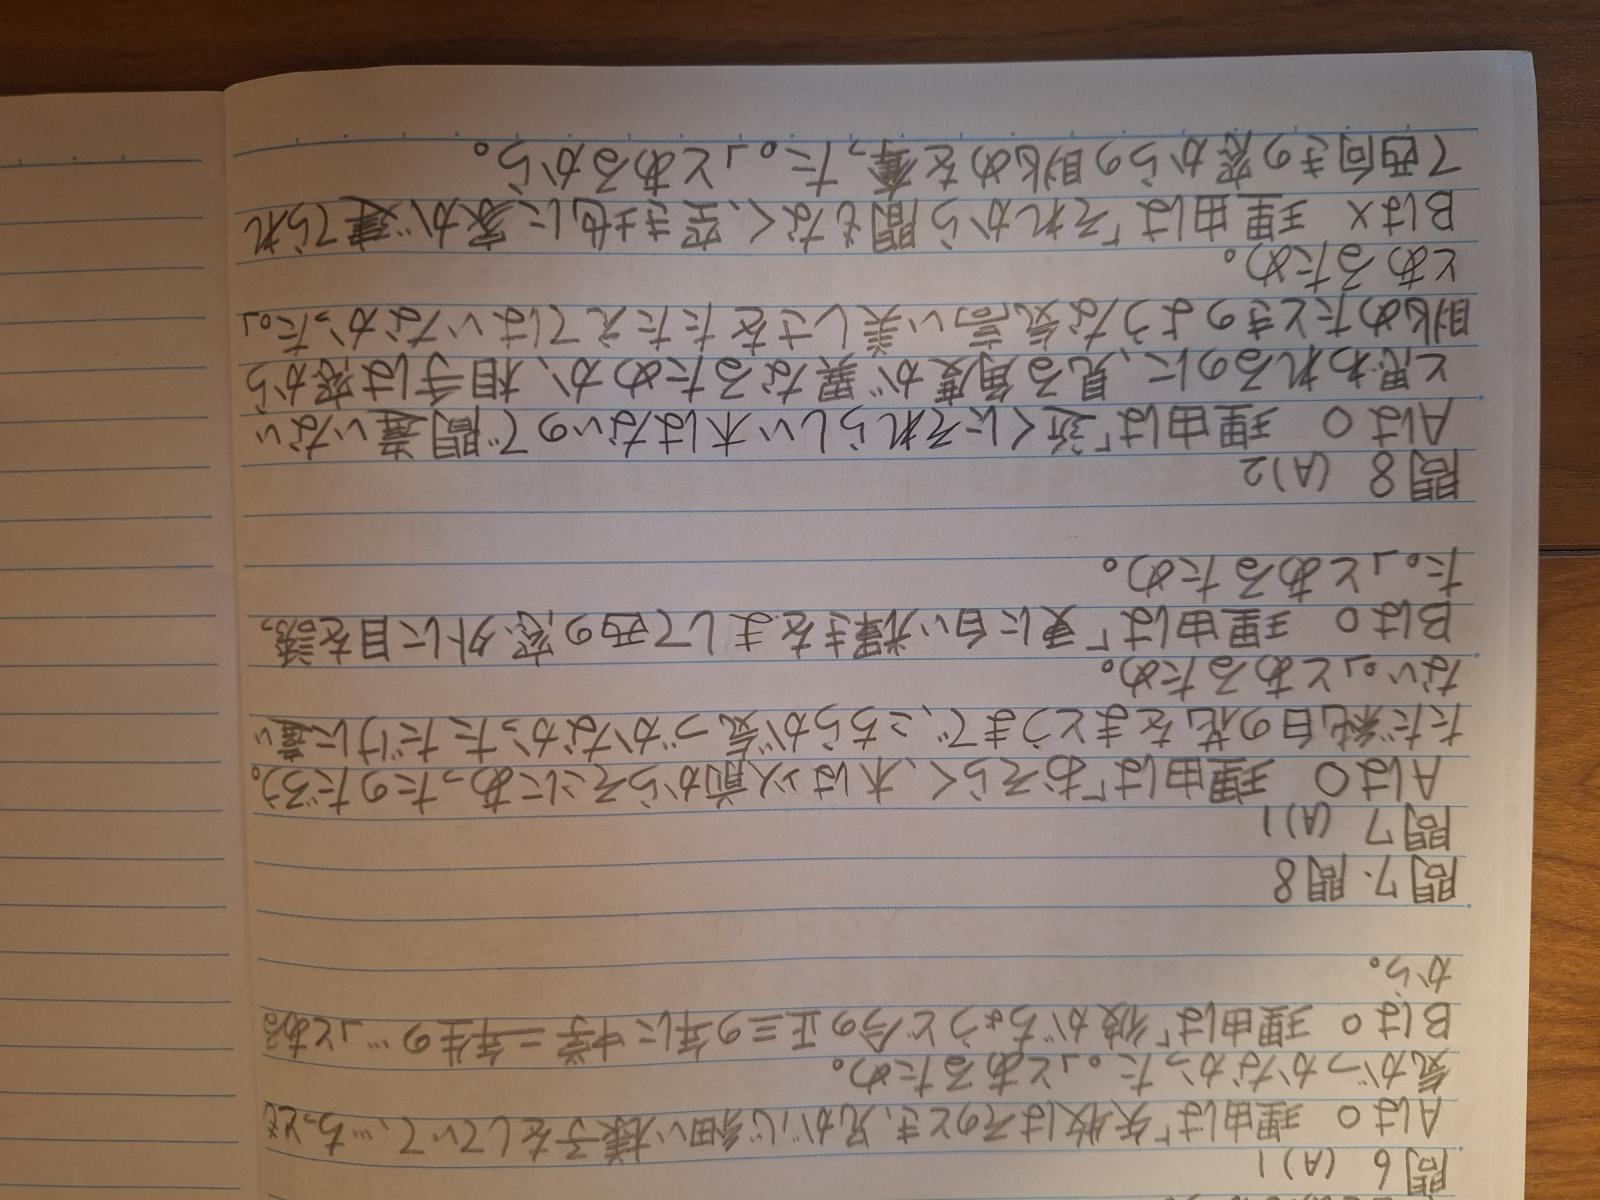 問6 (A)1
Aは○ 理由は「矢牧はそのとき、兄が心細い様子をしていて、…ちっとも
気がつかなかった。」とあるため。
Bは○ 理由は「彼がちょうど今の正三の年に中学二年生の…」とある
から。
問7・問8
問7 (A)1
Aは○ 理由は「おそらく、木は以前からそこにあったのだろう。
ただ純白の花をまとうまで、こちらが気づかなかっただけに違い
ない。」とあるため。
Bは○ 理由は「更に白い輝きをまして西の窓外に目を誘っ
た。」とあるため。
問8 (A)2
Aは○ 理由は「近くにそれらしい木はないので間違いない
と思われるのに、見る角度が異なるためか、相手は窓から
眺めたときのような気高い美しさをたたえてはいなかった。」
とあるため。
Bは× 理由は「それから間もなく、空き地に家が建てられ
て西向きの窓からの眺めを奪った。」とあるから。